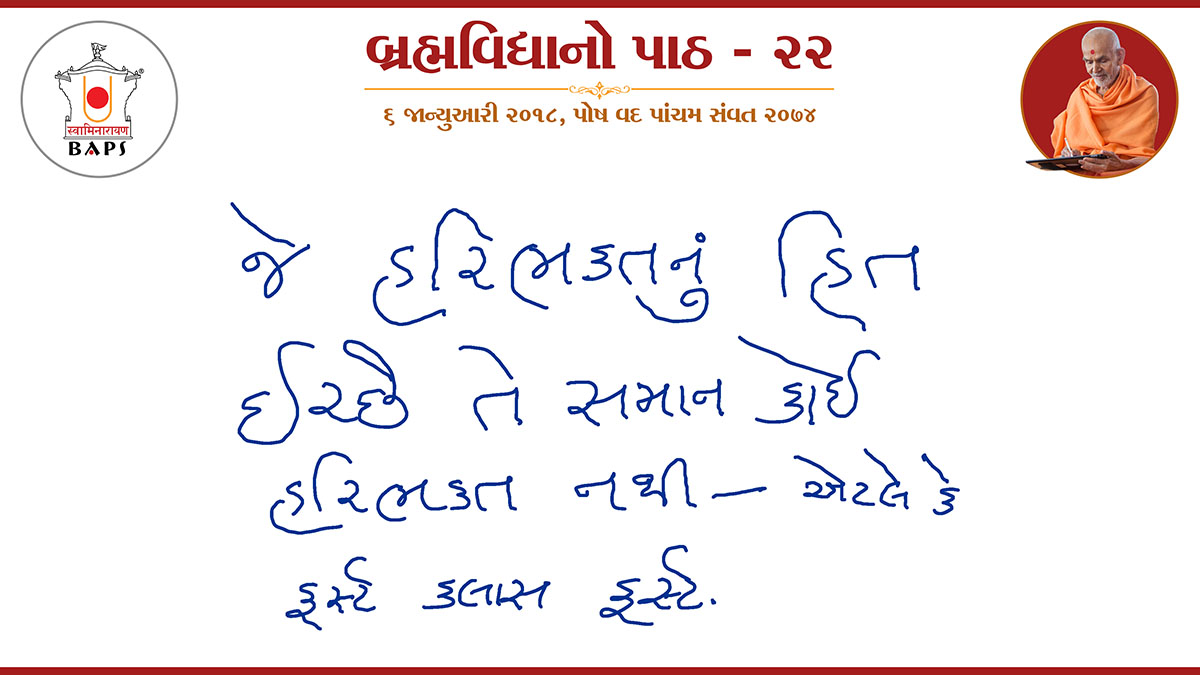 બ્રહ્મવિદ્યાનો પાઠ - ૨૨
૬ જાન્યુઆરી ૨૦૧૮, પોષ વદ પાંચમ સંવત ૨૦૭૪
स्वामिनारायण
BAPS
જે હરિભકતનું હિત
ઈચ્છે તે સમાન કોઈ
હરિભકત નથી – એટલે કે
ફર્સ્ટ કલાસ ફર્સ્ટ.